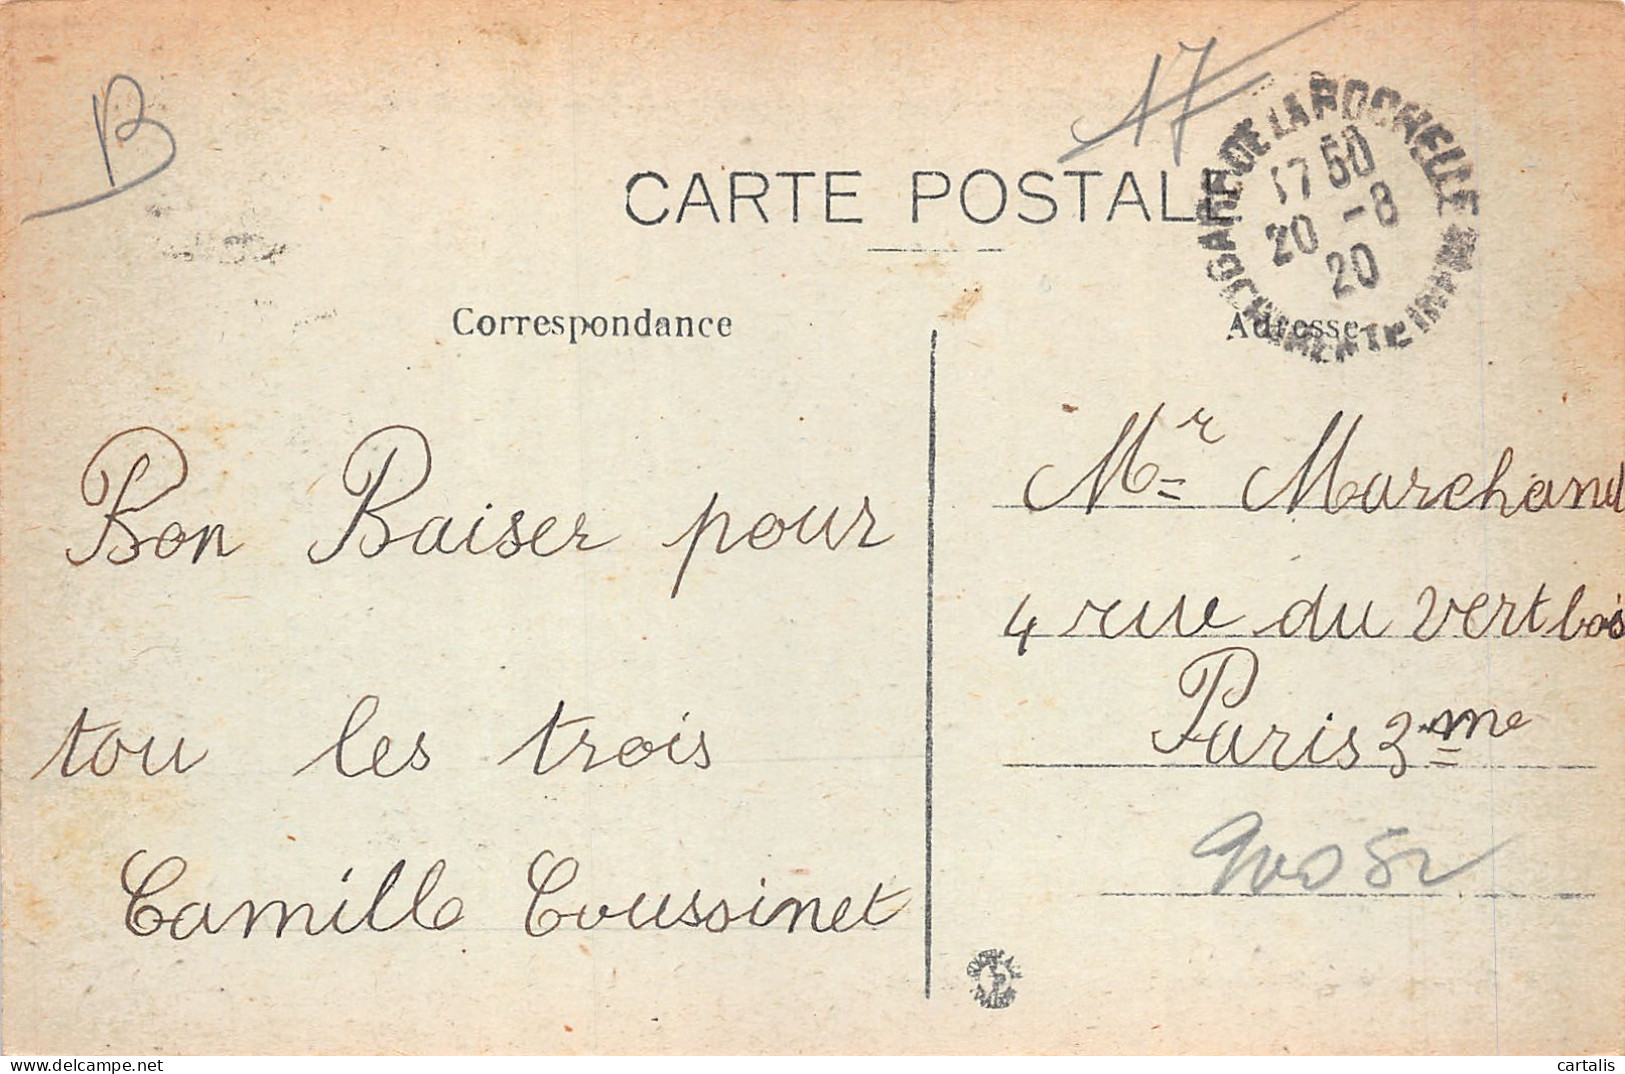 B
17
CARTE POSTALE
GARE DE LA ROCHELLE
17 50
20 -8
20
CHARENTE INFRE
Correspondance
Adresse
Bon Baiser pour
tou les trois
Camille Coussinet
Mr Marchand
4 rue du vertbois
Paris 3me
delcampe.net
cartalis